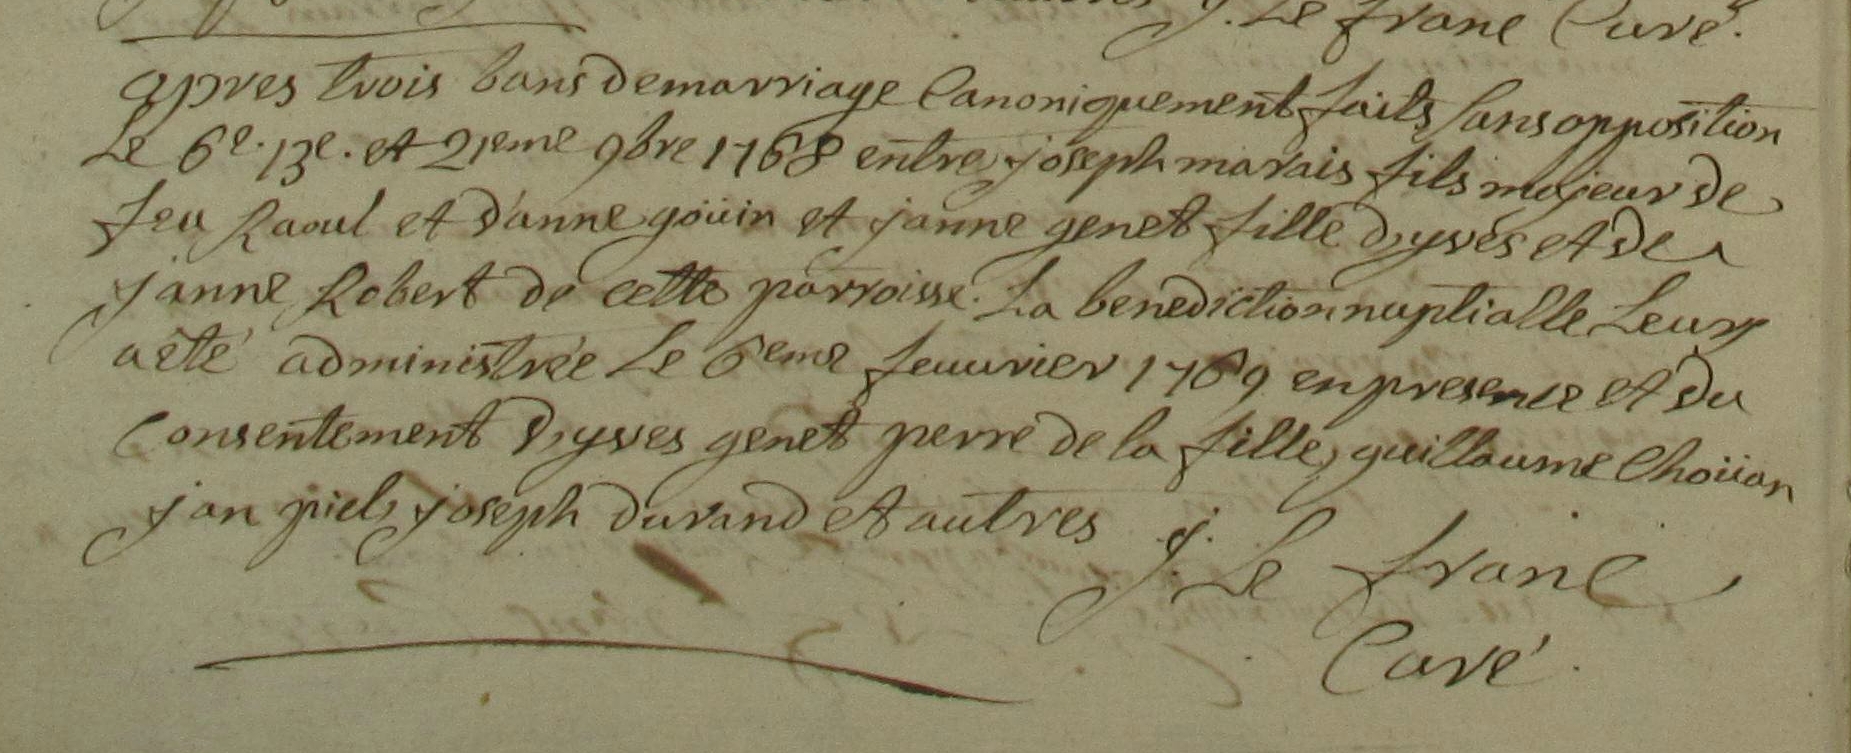 j. Le franc Curé.
apres trois bans de marriage Canoniquement faits sans opposition
Le 6e. 13e. et 21eme 9bre 1768 entre joseph marais fils majeur de
feu Raoul et d'anne goüin et janne genet fille d'yves et de
janne Robert de cette parroisse. La benediction nuptialle Leurs
a eté administrée Le 6eme feuurier 1769 en presence et du
Consentement d'yves genet perre de la fille, guillaume Choüan
jan piel, joseph durand et autres j. Le franc
Curé.